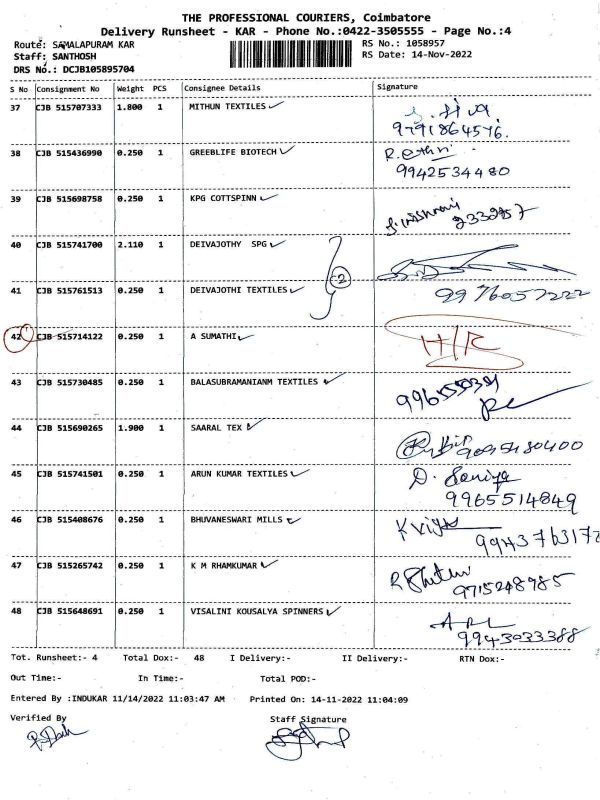 THE PROFESSIONAL COURIERS, Coimbatore
Delivery Runsheet - KAR - Phone No.:0422-3505555 - Page No.:4
Route: SAMALAPURAM KAR
RS No.: 1058957
Staff: SANTHOSH
RS Date: 14-Nov-2022
DRS No.: DCJB105895704
S No Consignment No Weight PCS Consignee Details Signature
37 CJB 515707333 1.800 1 MITHUN TEXTILES
9791864576.
38 CJB 515436990 0.250 1 GREEBLIFE BIOTECH
9942534480
39 CJB 515698758 0.250 1 KPG COTTSPINN
40 CJB 515741700 2.110 1 DEIVAJOTHY SPG
2
41 CJB 515761513 0.250 1 DEIVAJOTHI TEXTILES
9976057222
42 CJB 515714122 0.250 1 A SUMATHI
H/R
43 CJB 515730485 0.250 1 BALASUBRAMANIANM TEXTILES
44 CJB 515690265 1.900 1 SAARAL TEX
45 CJB 515741501 0.250 1 ARUN KUMAR TEXTILES
D. Saniya
9965514849
46 CJB 515408676 0.250 1 BHUVANESWARI MILLS
9943763172
47 CJB 515265742 0.250 1 K M RHAMKUMAR
9715248985
48 CJB 515648691 0.250 1 VISALINI KOUSALYA SPINNERS
9943033388
Tot. Runsheet:- 4 Total Dox:- 48 I Delivery:- II Delivery:- RTN Dox:-
Out Time:- In Time:- Total POD:-
Entered By :INDUKAR 11/14/2022 11:03:47 AM Printed On: 14-11-2022 11:04:09
Verified By Staff Signature